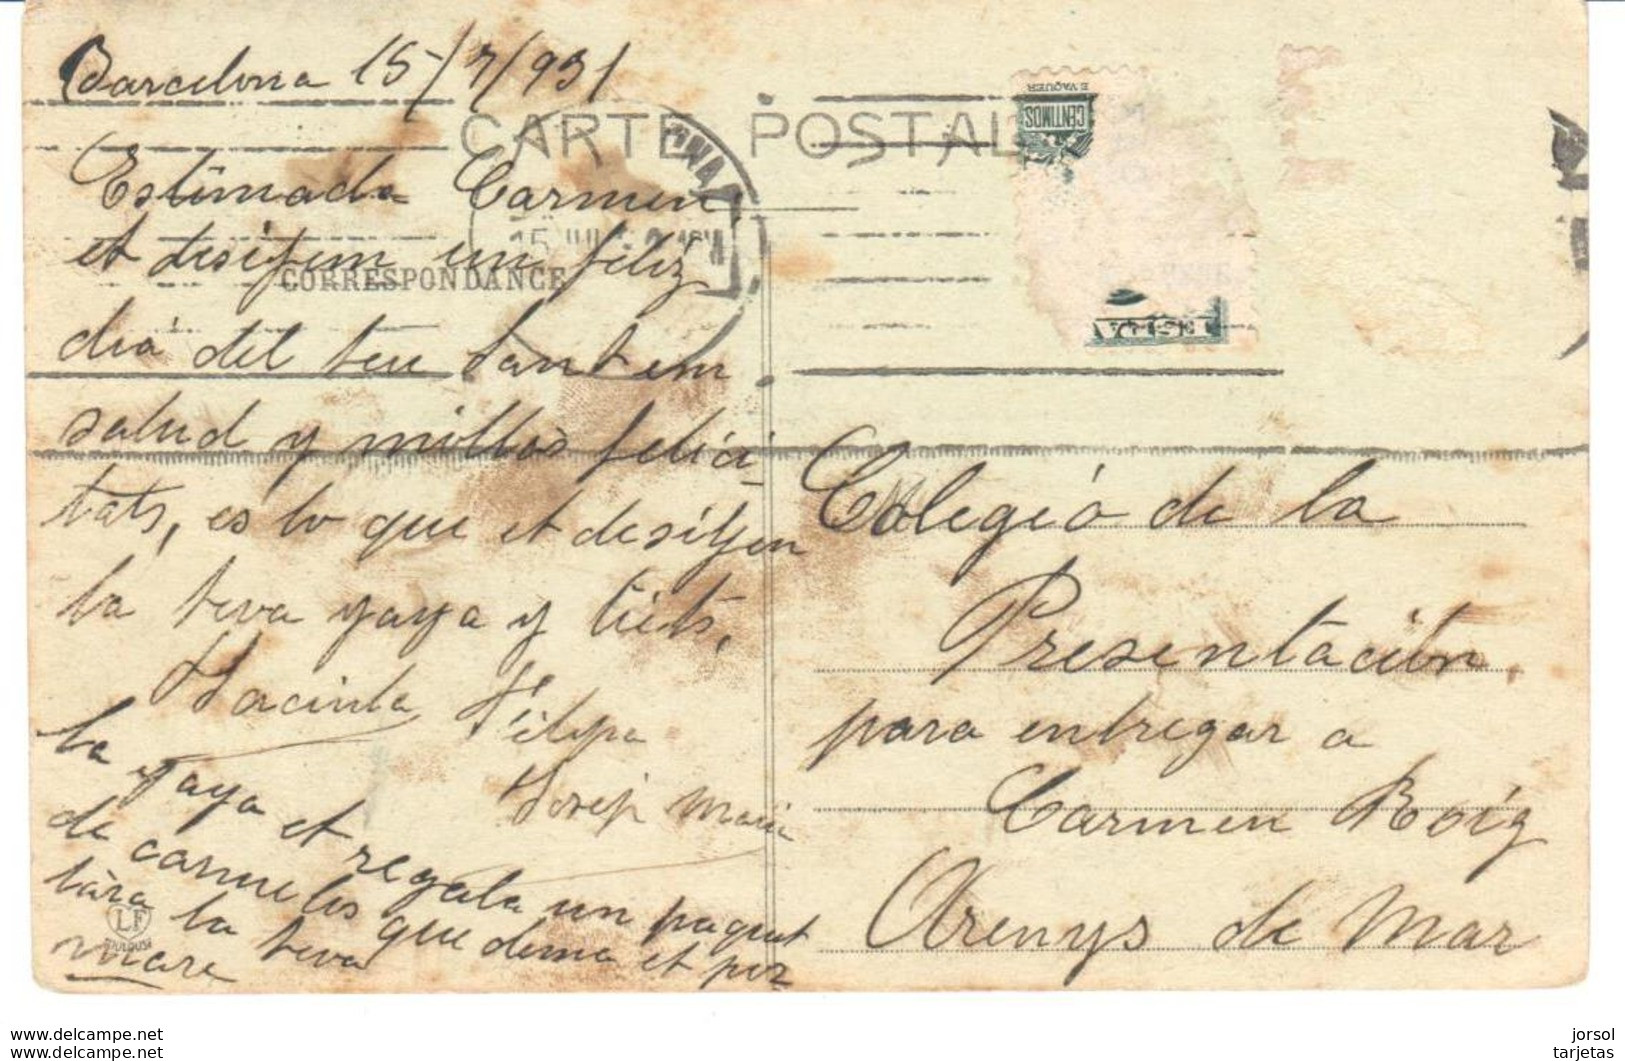 Barcelona 15/7/931
CARTE POSTALE
Estimada Carmen,
et desitjem un feliz
CORRESPONDANCE
dia del teu Sant em
salud y molltas felici-
tats, es lo que et desitjen
la teva yaya y tiets,
Jacinta Felipa
Josep Maria
la yaya et regala un paquet
de carmelos que dema et por
tàra la teva
mare
LF
TOULOUSE
CENTIMOS
E. VAQUER
Colegió de la
Presentación,
para entregar a
Carmen Roig
Arenys de Mar
www.delcampe.net
www.delcampe.net
jorsol
tarjetas